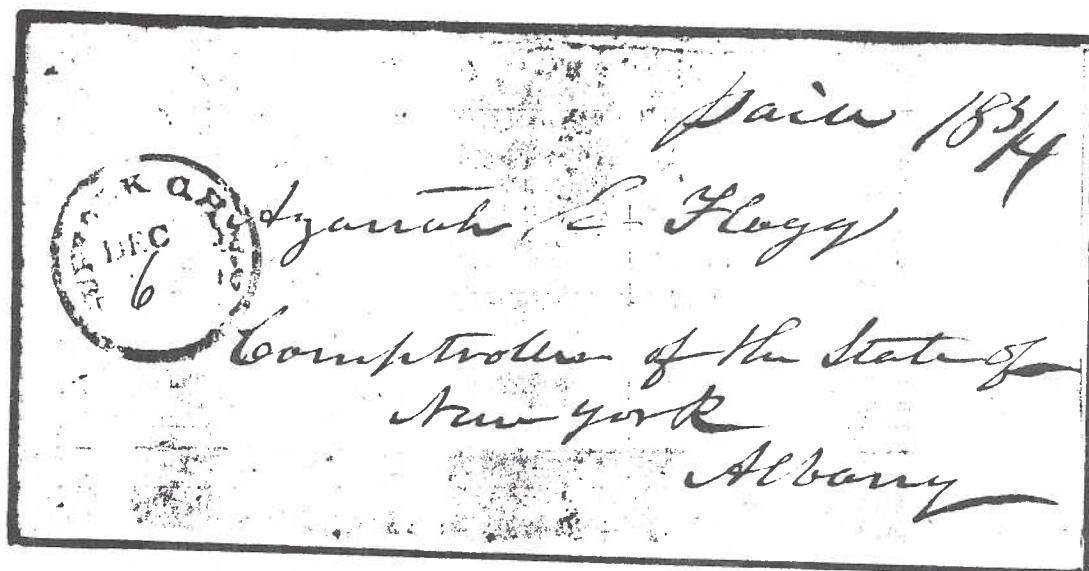 Paid 18 3/4
Azariah C. Flagg
DEC
6
Comptroller of the State of
New York
Albany